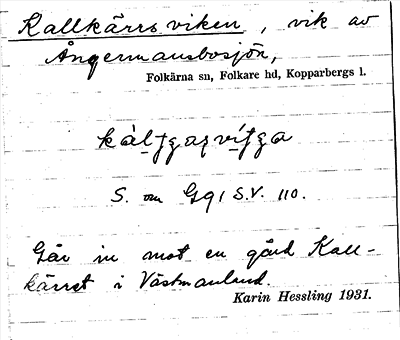 Kallkärrsviken, vik av
Ångermansbosjön,
Folkärna sn, Folkare hd, Kopparbergs l.
S. om Gg 1 S.V. 110.
Går in mot en gård Kall-
kärret i Västmanland.
Karin Hessling 1931.